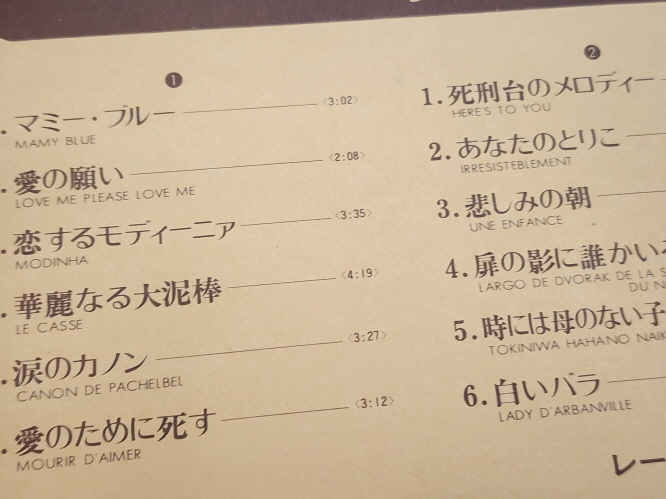 ❶
. マミー・ブルー 〈3:02〉
MAMY BLUE
. 愛の願い 〈2:08〉
LOVE ME PLEASE LOVE ME
. 恋するモディーニァ 〈3:35〉
MODINHA
. 華麗なる大泥棒 〈4:19〉
LE CASSE
. 涙のカノン 〈3:27〉
CANON DE PACHELBEL
. 愛のために死す 〈3:12〉
MOURIR D'AIMER
❷
1. 死刑台のメロディー
HERE'S TO YOU
2. あなたのとりこ
IRRESISTEBLEMENT
3. 悲しみの朝
UNE ENFANCE
4. 扉の影に誰かい
LARGO DE DVORAK DE LA S
DU N
5. 時には母のない子
TOKINIWA HAHANO NAIK
6. 白いバラ
LADY D'ARBANVILLE
レー